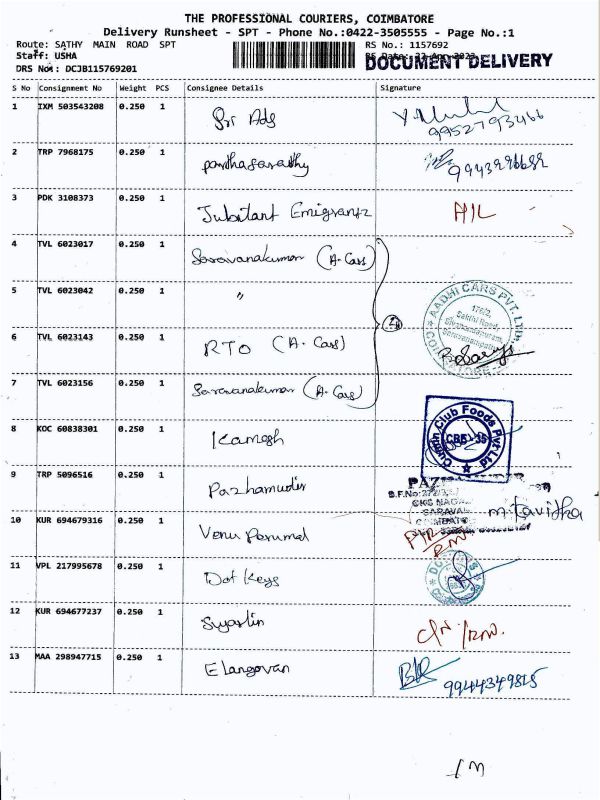 THE PROFESSIONAL COURIERS, COIMBATORE
Delivery Runsheet - SPT - Phone No.:0422-3505555 - Page No.:1
Route: SATHY MAIN ROAD SPT RS No.: 1157692
Staff: USHA
DOCUMENT DELIVERY
DRS No: DCJB115769201
S No Consignment No Weight PCS Consignee Details Signature
1 IXM 503543208 0.250 1 Sri Ads
2 TRP 7968175 0.250 1 parthasarathy
3 PDK 3108373 0.250 1 Jubilant
4 TVL 6023017 0.250 1 Saravanakumar (A. Cars)
5 TVL 6023042 0.250 1 "
AADHI CARS PVT. LTD.
176/2,
Sathi Road,
6 TVL 6023143 0.250 1 RTO (A. Cars)
7 TVL 6023156 0.250 1 Saravanakumar (A. Cars)
8 KOC 60838301 0.250 1 Kamesh
Club Foods Pvt Ltd
CBE - 35
9 TRP 5096516 0.250 1 Pazhamudir
CKS NAGAR
10 KUR 694679316 0.250 1 Venu Perumal
M. Kavitha
11 VPL 217995678 0.250 1 Dot Keys
12 KUR 694677237 0.250 1
13 MAA 298947715 0.250 1 Elangovan
9944349815